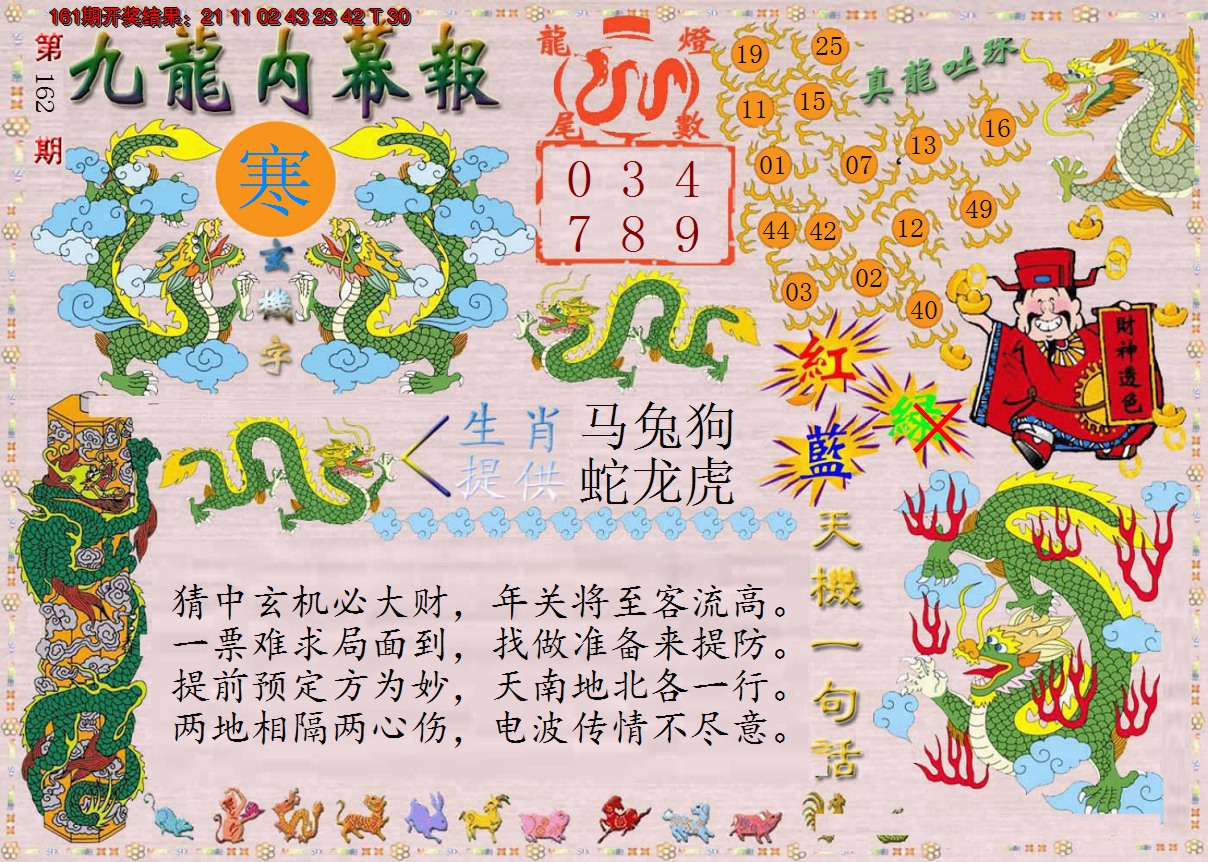 161期开奖结果：21 11 02 43 23 42 T 30
第162期
九龍内幕報
寒
玄機字
龍燈
尾數
0 3 4
7 8 9
真龍吐珠
19 25
11 15
01 07 13 16
44 42 12 49
03 02 40
財神透色
紅
綠
藍
生肖
提供
马兔狗
蛇龙虎
天機一句话
猜中玄机必大财，年关将至客流高。
一票难求局面到，找做准备来提防。
提前预定方为妙，天南地北各一行。
两地相隔两心伤，电波传情不尽意。